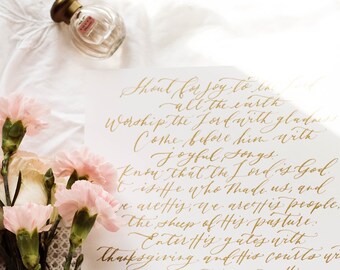 Shout for joy to the Lord
all the earth
Worship the Lord with gladness
Come before him with
joyful songs
Know that the Lord is God
it is He who made us, and
we are His; we are His people,
the sheep of His pasture.
Enter His gates with
thanksgiving and His courts with